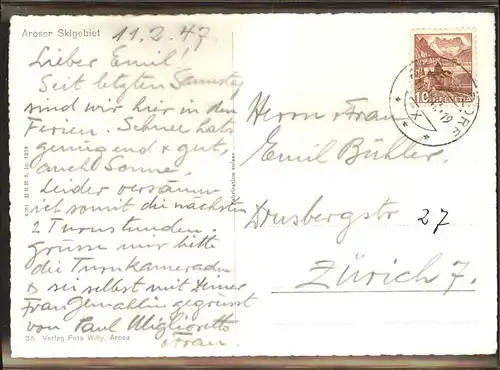 Aroser Skigebiet
11.2.47.
Lieber Emil!
Seit letzten Samstag
sind wir hier in den
Ferien. Schnee hats
genügend & gut,
auch Sonne.
Leider versäum
ich somit die nächsten
2 Turnstunden.
Grüsse mir bitte
die Turnkameraden
& sei selbst mit Deiner
Frau Gemahlin gegrüsst
von Paul Miglioretto
& Frau.
35 Verlag Foto Willy, Arosa
10 HELVETIA
DORF
Herrn & Frau
Emil Bühler,
Drusbergstr 27
Zürich 7.